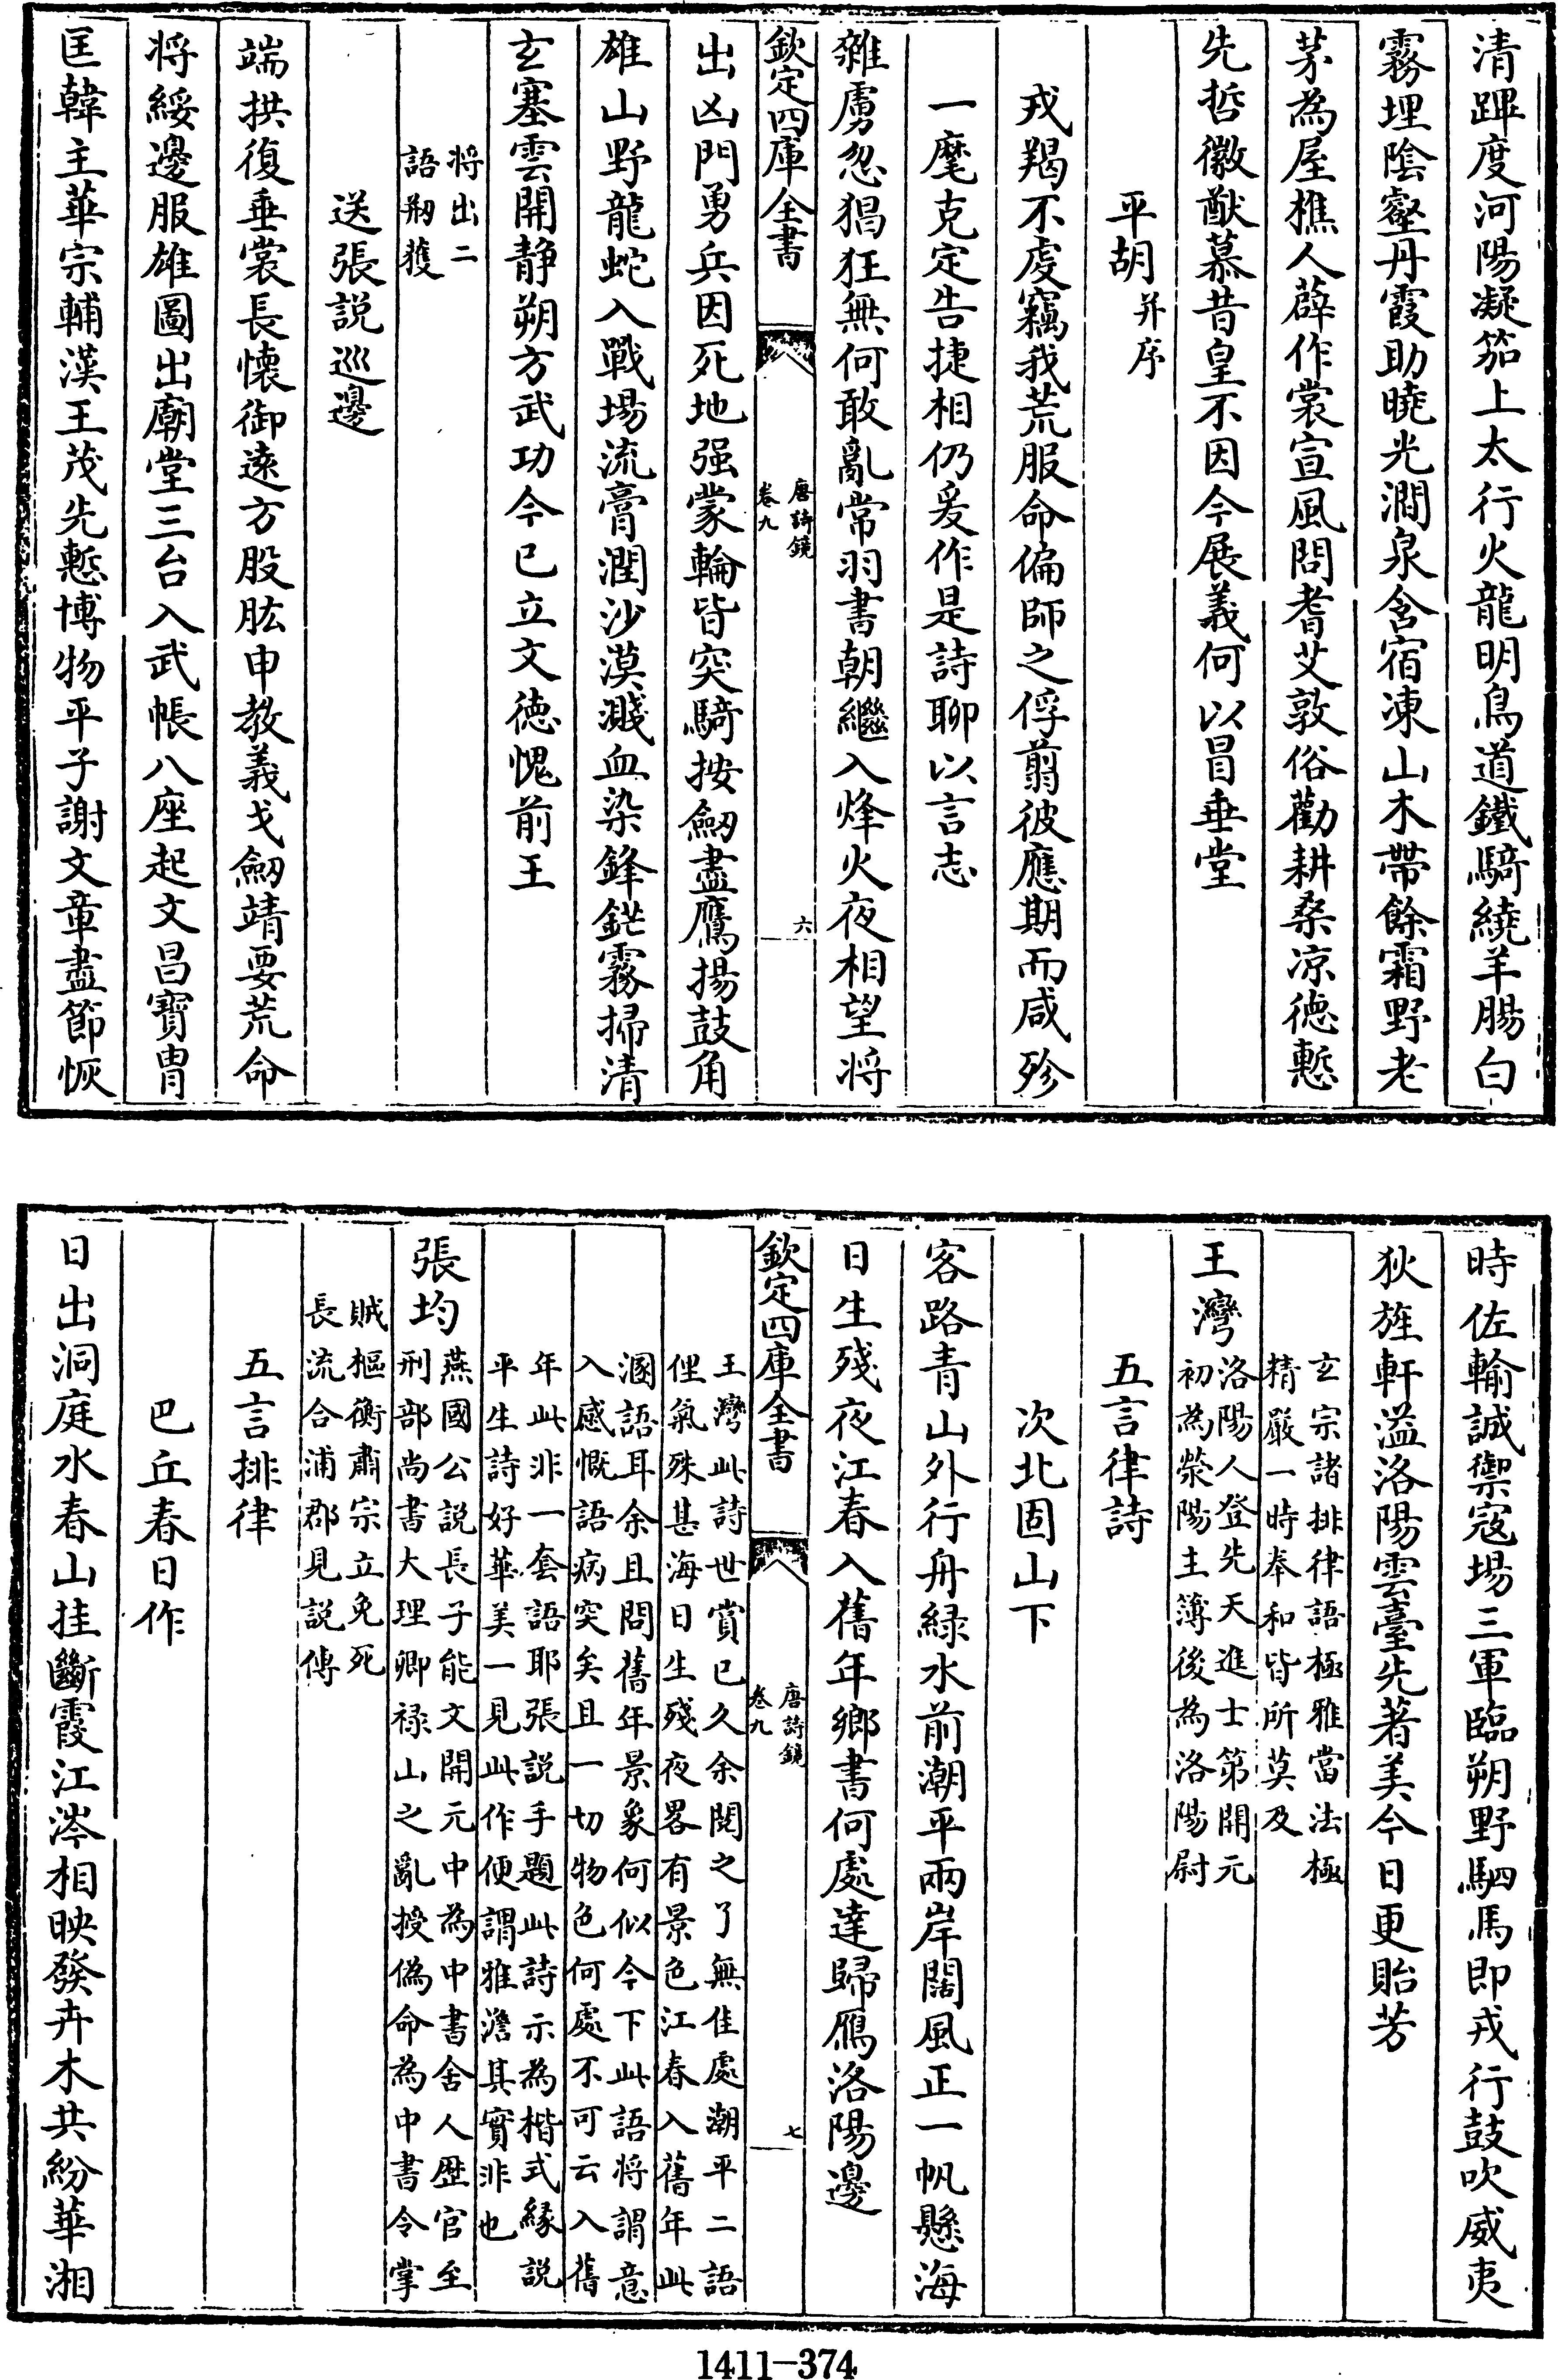 清蹕度河陽凝笳上太行火龍明鳥道鐵騎繞羊腸白
霧埋陰壑丹霞助曉光澗泉含宿凍山木帶餘霜野老
茅為屋樵人薜作裳宣風問耆艾敦俗勸耕桑凉德慙
先哲徽猷慕昔皇不因今展義何以冒垂堂
平胡并序
戎羯不虔竊我荒服命偏師之俘翦彼應期而咸殄
一麾克定告捷相仍爰作是詩聊以言志
雜虜忽猖狂無何敢亂常羽書朝繼入烽火夜相望将
欽定四庫全書
唐詩鏡
卷九
六
出凶門勇兵因死地强蒙輪皆突騎按劒盡鷹揚鼓角
雄山野龍蛇入戰場流膏潤沙漠濺血染鋒鋩霧掃清
玄塞雲開静朔方武功今已立文徳愧前王
将出二
語刱獲
送張説巡邊
端拱復垂裳長懐御遠方股肱申教義戈劒靖要荒命
将綏邊服雄圖出廟堂三台入武帳八座起文昌寶胄
匡韓主華宗輔漢王茂先慙博物平子謝文章盡節恢
時佐輸誠禦寇場三軍臨朔野駟馬即戎行鼓吹威夷
狄旌軒溢洛陽雲臺先著美今日更貽芳
玄宗諸排律語極雅當法極
精嚴一時奉和皆所莫及
王灣
洛陽人登先天進士第開元
初為滎陽主簿後為洛陽尉
五言律詩
次北固山下
客路青山外行舟緑水前潮平兩岸闊風正一帆懸海
日生殘夜江春入舊年鄉書何處達歸鴈洛陽邊
欽定四庫全書
唐詩鏡
卷九
七
王灣此詩世賞已久余閱之了無佳處潮平二語
俚氣殊甚海日生殘夜畧有景色江春入舊年此
溷語耳余且問舊年景象何似今下此語将謂意
入感慨語病突矣且一切物色何處不可云入舊
年此非一套語耶張説手題此詩示為楷式緣説
平生詩好華美一見此作便謂雅澹其實非也
張均
燕國公説長子能文開元中為中書舍人歴官至
刑部尚書大理卿禄山之亂授偽命為中書令掌
賊樞衡肅宗立免死
長流合浦郡見説傳
五言排律
巴丘春日作
日出洞庭水春山挂斷霞江涔相映發卉木共紛華湘
1411-374